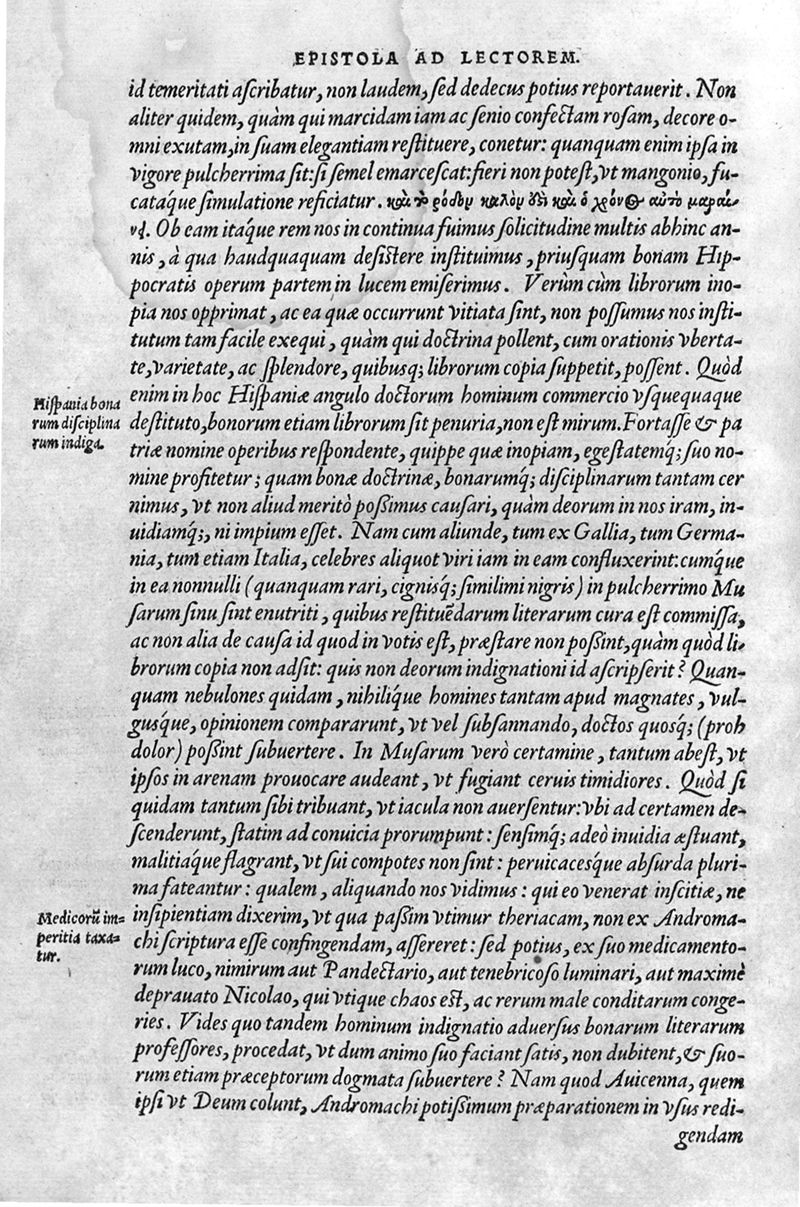 EPISTOLA AD LECTOREM.
id temeritati aſcribatur, non laudem, ſed dedecus potius reportauerit. Non
aliter quidem, quàm qui marcidam iam ac ſenio confectam roſam, decore o-
mni exutam, in ſuam elegantiam reſtituere, conetur: quanquam enim ipſa in
vigore pulcherrima ſit: ſi ſemel emarceſcat: fieri non poteſt, vt mangonio, fu-
cataq́ue ſimulatione reficiatur. καὶ τὸ ῥόδον καλὸν ὅτι καὶ ὁ χρόνος αὐτὸ μαραί-
νει. Ob eam itaq́ue rem nos in continua fuimus ſolicitudine multis abhinc an-
nis, à qua haudquaquam deſiſtere inſtituimus, priuſquam bonam Hip-
pocratis operum partem in lucem emiſerimus. Verùm cùm librorum ino-
pia nos opprimat, ac ea quæ occurrunt vitiata ſint, non poſſumus nos inſti-
tutum tam facile exequi, quàm qui doctrina pollent, cum orationis vberta-
te, varietate, ac ſplendore, quibusq; librorum copia ſuppetit, poſſent. Quòd
enim in hoc Hiſpaniæ angulo doctorum hominum commercio vſquequaque
Hiſpania bona
rum diſciplina
rum indiga.
deſtituto, bonorum etiam librorum ſit penuria, non eſt mirum. Fortaſſe & pa
triæ nomine operibus reſpondente, quippe quæ inopiam, egeſtatemq́; ſuo no-
mine profitetur; quam bonæ doctrinæ, bonarumq́; diſciplinarum tantam cer
nimus, vt non aliud meritò poſſimus cauſari, quàm deorum in nos iram, in-
uidiamq́;, ni impium eſſet. Nam cum aliunde, tum ex Gallia, tum Germa-
nia, tum etiam Italia, celebres aliquot viri iam in eam confluxerint: cumq́ue
in ea nonnulli (quanquam rari, cigniſq́; ſimilimi nigris) in pulcherrimo Mu
ſarum ſinu ſint enutriti, quibus reſtituẽdarum literarum cura eſt commiſſa,
ac non alia de cauſa id quod in votis eſt, præſtare non poſſint, quàm quòd li-
brorum copia non adſit: quis non deorum indignationi id aſcripſerit? Quan-
quam nebulones quidam, nihiliq́ue homines tantam apud magnates, vul-
guſq́ue, opinionem compararunt, vt vel ſubſannando, doctos quoſq́; (proh
dolor) poſſint ſubuertere. In Muſarum verò certamine, tantum abeſt, vt
ipſos in arenam prouocare audeant, vt fugiant ceruis timidiores. Quòd ſi
quidam tantum ſibi tribuant, vt iacula non auerſentur: vbi ad certamen de-
ſcenderunt, ſtatim ad conuicia prorumpunt: ſenſimq́; adeò inuidia æſtuant,
malitiaq́ue flagrant, vt ſui compotes non ſint: peruicaceſq́ue abſurda pluri-
ma fateantur: qualem, aliquando nos vidimus: qui eo venerat inſcitiæ, ne
Medicorũ im=
peritia taxa=
tur.
inſipientiam dixerim, vt qua paſſim vtimur theriacam, non ex Androma-
chi ſcriptura eſſe confingendam, aſſereret: ſed potius, ex ſuo medicamento-
rum luco, nimirum aut Pandectario, aut tenebricoſo luminari, aut maximè
deprauato Nicolao, qui vtique chaos eſt, ac rerum male conditarum conge-
ries. Vides quo tandem hominum indignatio aduerſus bonarum literarum
profeſſores, procedat, vt dum animo ſuo faciant ſatis, non dubitent, & ſuo-
rum etiam præceptorum dogmata ſubuertere? Nam quod Auicenna, quem
ipſi vt Deum colunt, Andromachi potiſſimum præparationem in vſus redi-
gendam